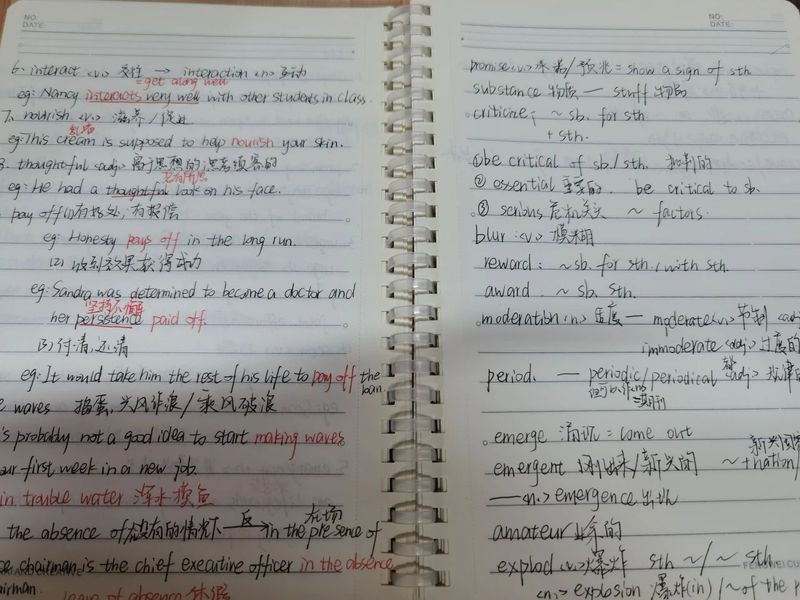 NO:
DATE:
6. interact <v.> 交往 → interaction <n.> 互动
= get along well
eg: Nancy interacts very well with other students in class.
7. nourish <v.> 滋养
乳霜
eg: This cream is supposed to help nourish your skin.
8. thoughtful <adj.>
若有所思
eg: He had a thoughtful look on his face.
pay off (1) 有好处,有报偿
eg: Honesty pays off in the long run.
(2) 收到效果获得成功
eg: Sandra was determined to become a doctor and
坚持不懈
her persistence paid off.
(3) 付清,还清
eg: It would take him the rest of his life to pay off the
loan.
waves 捣蛋,兴风作浪/乘风破浪
's probably not a good idea to start making waves
our first week in a new job.
in trouble water 浑水摸鱼
the absence of 没有的情况下 反→ in the presence of
在场
chairman is the chief executive officer in the absence
airman.
leave of absence 休假
NO:
DATE:
promise <v.> 承诺/预兆 = show a sign of sth.
substance 物质 — stuff 物品
criticize: ~ sb. for sth.
+ sth.
① be critical of sb./sth. 批判的
② essential 重要的. be critical to sb.
③ serious 危机关头 ~ factors.
blur <v.> 模糊
reward: ~ sb. for sth./with sth.
award ~ sb. sth.
moderation <n.> 适度 — moderate <v.> 节制
immoderate <adj.> 过度的
period. — periodic/periodical adj.
期刊
emerge 涌现 = come out
新兴国家
emergent 刚出来/新兴的 ~ +nation/
— <n.> emergence 出现
amateur 业余的
explod <v.> 爆炸 sth ~/~ sth
<n.> explosion 爆炸(in) / ~ of the